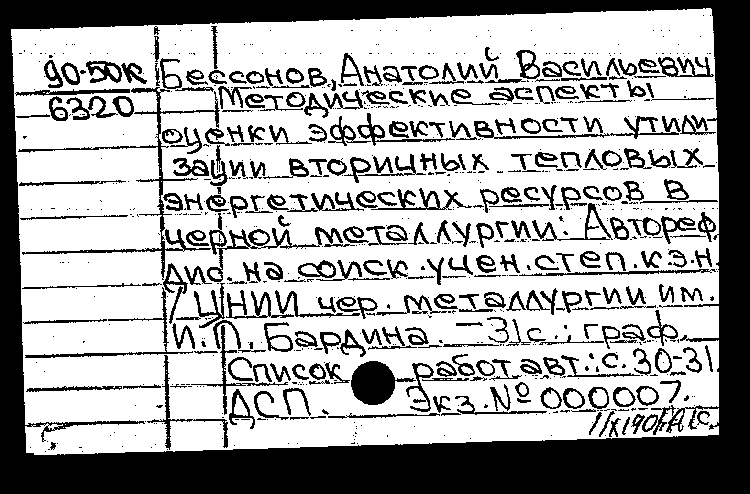 90-50к Бессонов, Анатолий Васильевич
6320 Методические аспекты
оценки эффективности утили-
зации вторичных тепловых
энергетических ресурсов в
черной металлургии: Автореф.
дис. на соиск. учен. степ. к.э.н.
/ ЦНИИ чер. металлургии им.
И.П. Бардина. – 31с.; граф.
Список работ авт.: с. 30-31.
ДСП. Экз. № 000007.